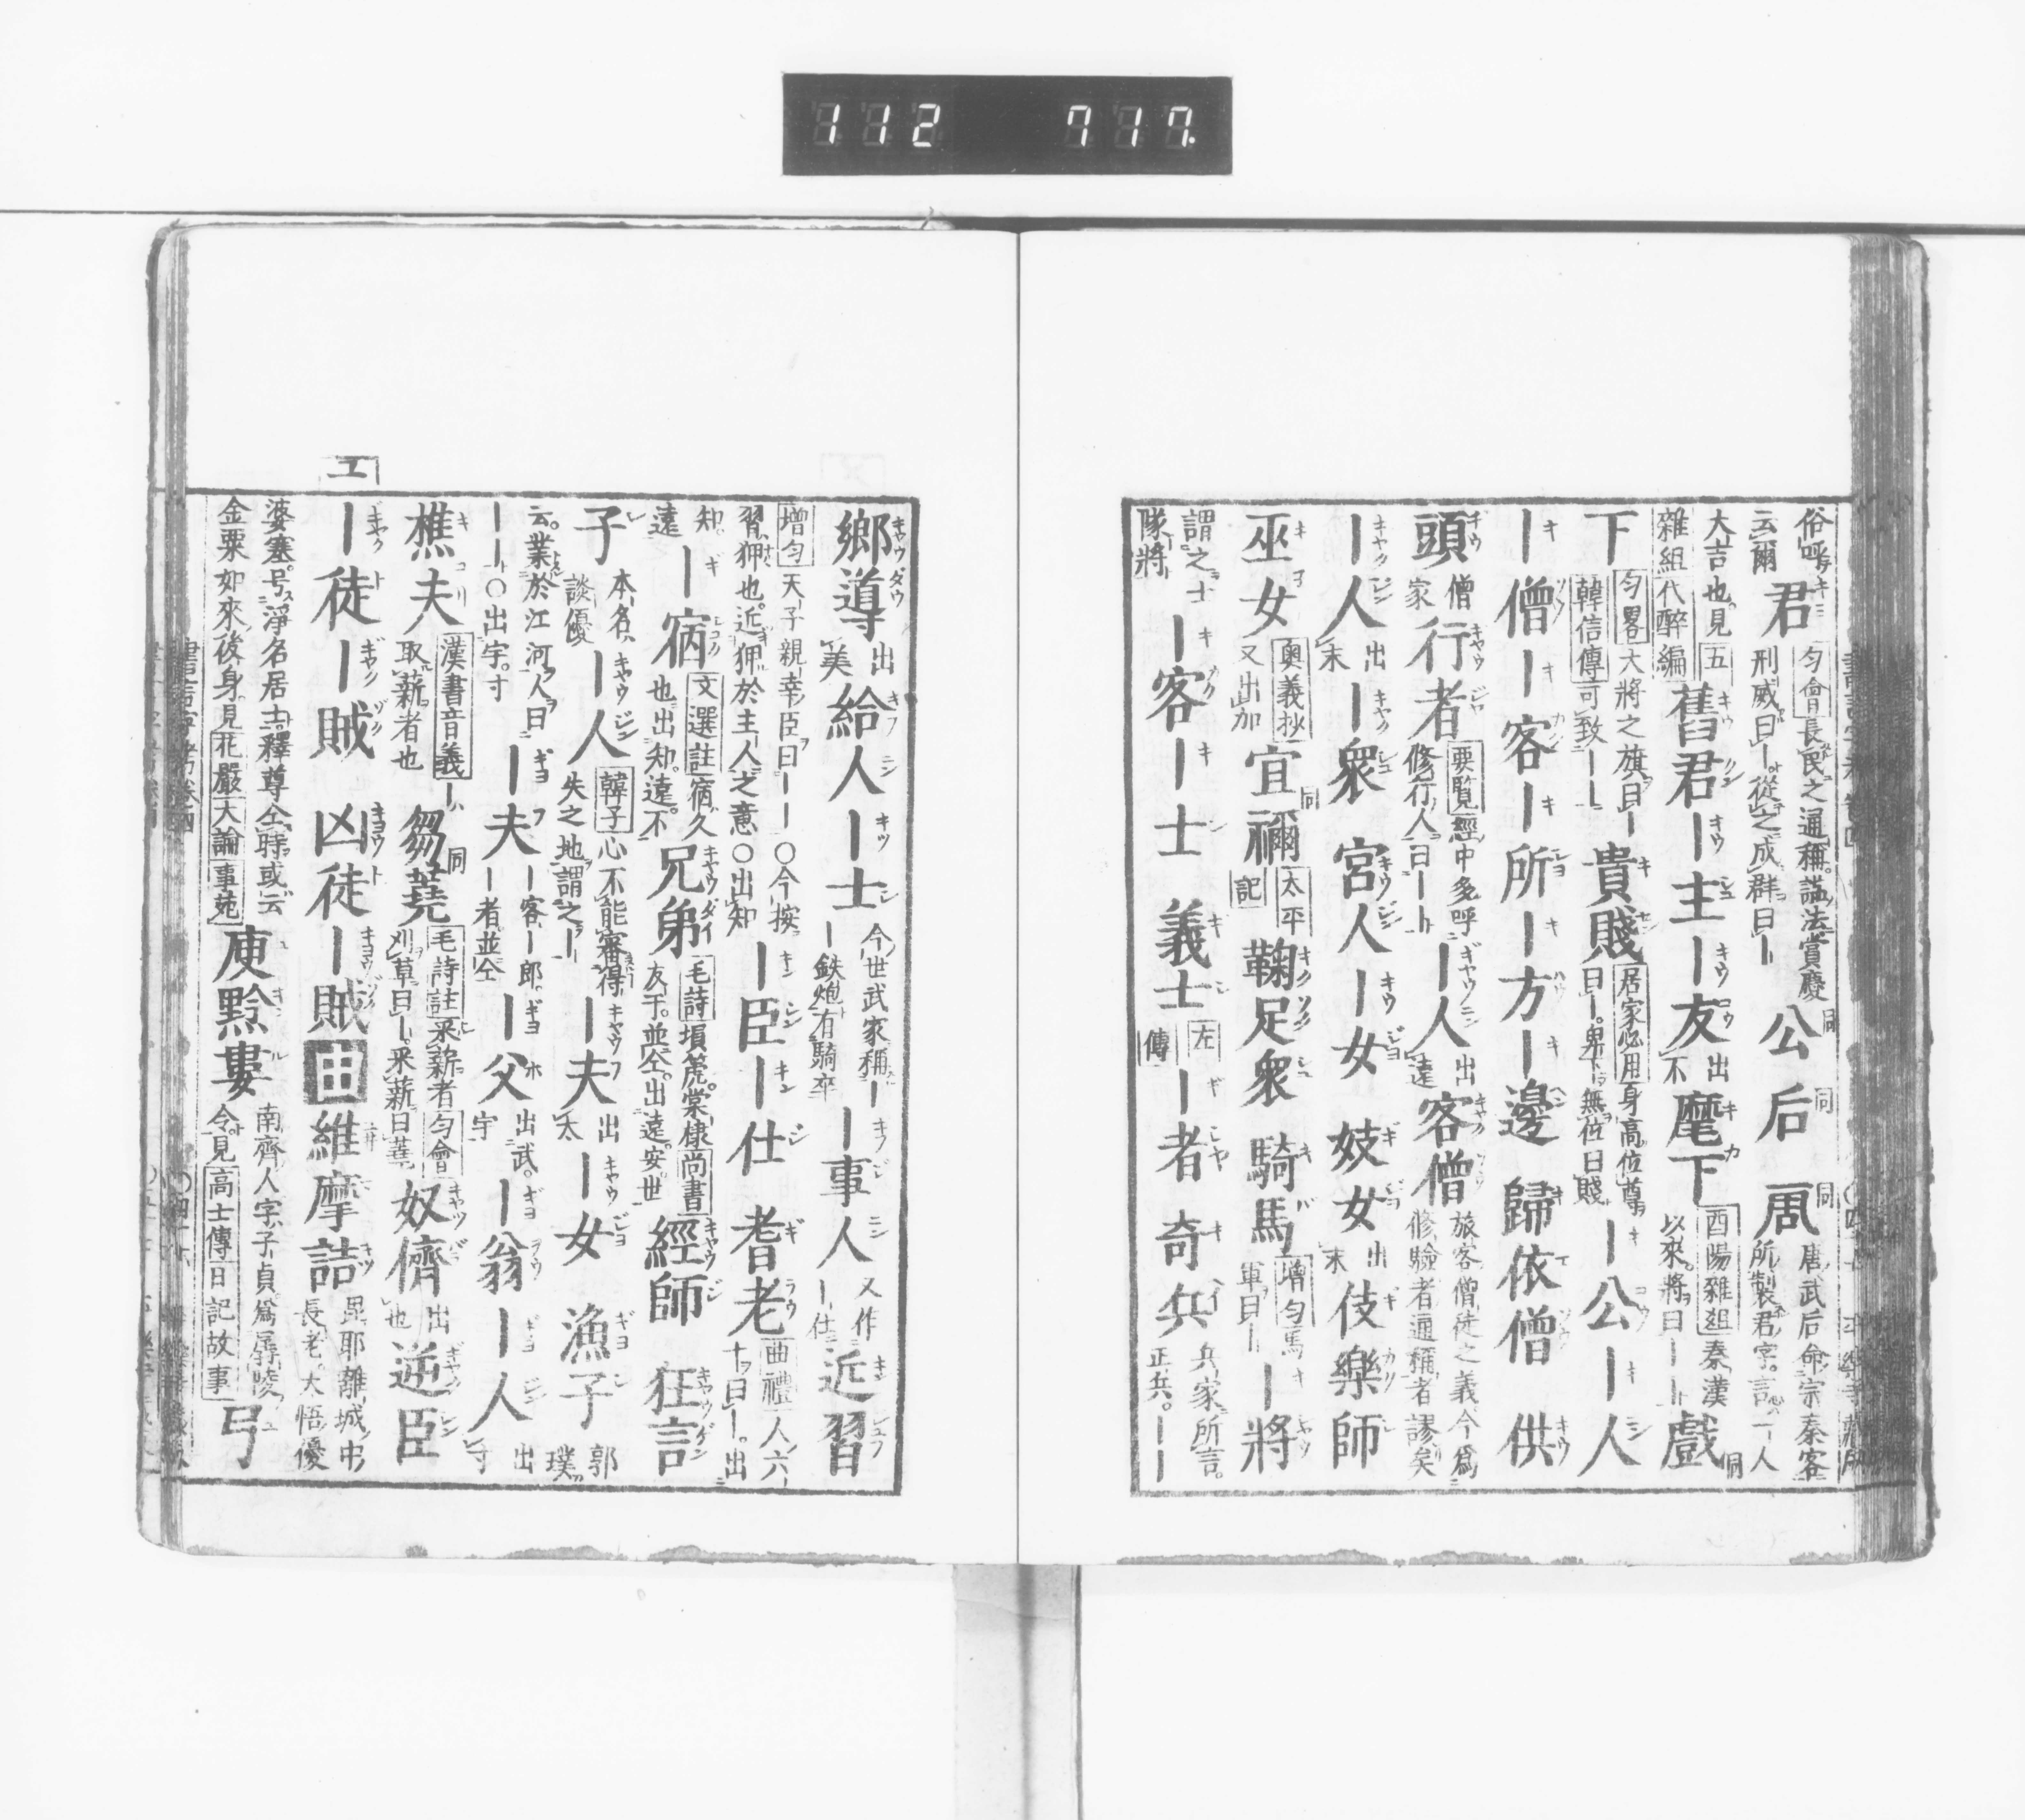 112 717.
俗呼云爾 君 匀會長民之通稱謚法賞慶刑威曰｜從之成群曰｜ 公 同 后 同 𠁈 同 唐武后命宗秦客所製君字言一人
大吉也見五雜組代醉編 舊君 ｜主 ｜友 出不 麾下 酉陽雜俎秦漢以來將曰｜｜ 戲
下 同 匀畧大將之旗曰｜韓信傳可致｜｜ 貴賤 居家必用身高位尊曰｜卑｜無位曰賤 ｜公 ｜人
｜僧 ｜客 ｜所 ｜方 ｜邊 歸依僧 供
頭 僧家 行者 要覧經中多呼修行人曰｜｜ ｜人 出遠 客僧 旅客僧徒之義今爲修驗者通稱者謬矣
｜人 出末 ｜衆 宮人 ｜女 妓女 出末 伎樂師
巫女 奧義抄又出加 宜禰 同 太平記 鞠足衆 騎馬 增匀馬軍曰｜ ｜將
謂之士隊將 ｜客 ｜士 義士 左傳 ｜者 奇兵 兵家所言正兵｜｜
鄉導 出美 給人 ｜士 今世武家稱｜｜鉄炮有騎卒 ｜事人 又作｜仕 近習
增匀天子親幸臣曰｜｜○今按習狎也近狎於主人之意○出知 ｜臣 ｜仕 耆老 曲禮人六十曰｜出
知遠 ｜宿 文選註宿久也出知遠不 兄弟 毛詩塤箎棠棣尚書友于並仝出遠安世 經師 狂言
子 本名談優 ｜人 韓子心不能審得失之地謂之｜ ｜夫 出太 ｜女 漁子 郭璞
云業於江河人曰｜｜○出宇寸 ｜夫 ｜客｜郎｜者並仝 ｜父 出武宇 ｜翁 ｜人 出寸
樵夫 漢書音義｜取薪者也 芻蕘 同 毛詩註采薪者匀會刈草曰｜采薪曰蕘 奴儕 出也 逆臣
エ
｜徒 ｜賊 凶徒 ｜賊 维摩詰 毘耶離城中長老大悟優
婆塞号淨名居士釋尊仝時或云金粟如來後身見花嚴大論事苑 庾黔婁 南齊人字子貞爲孱陵令見高士傳日記故事 弓